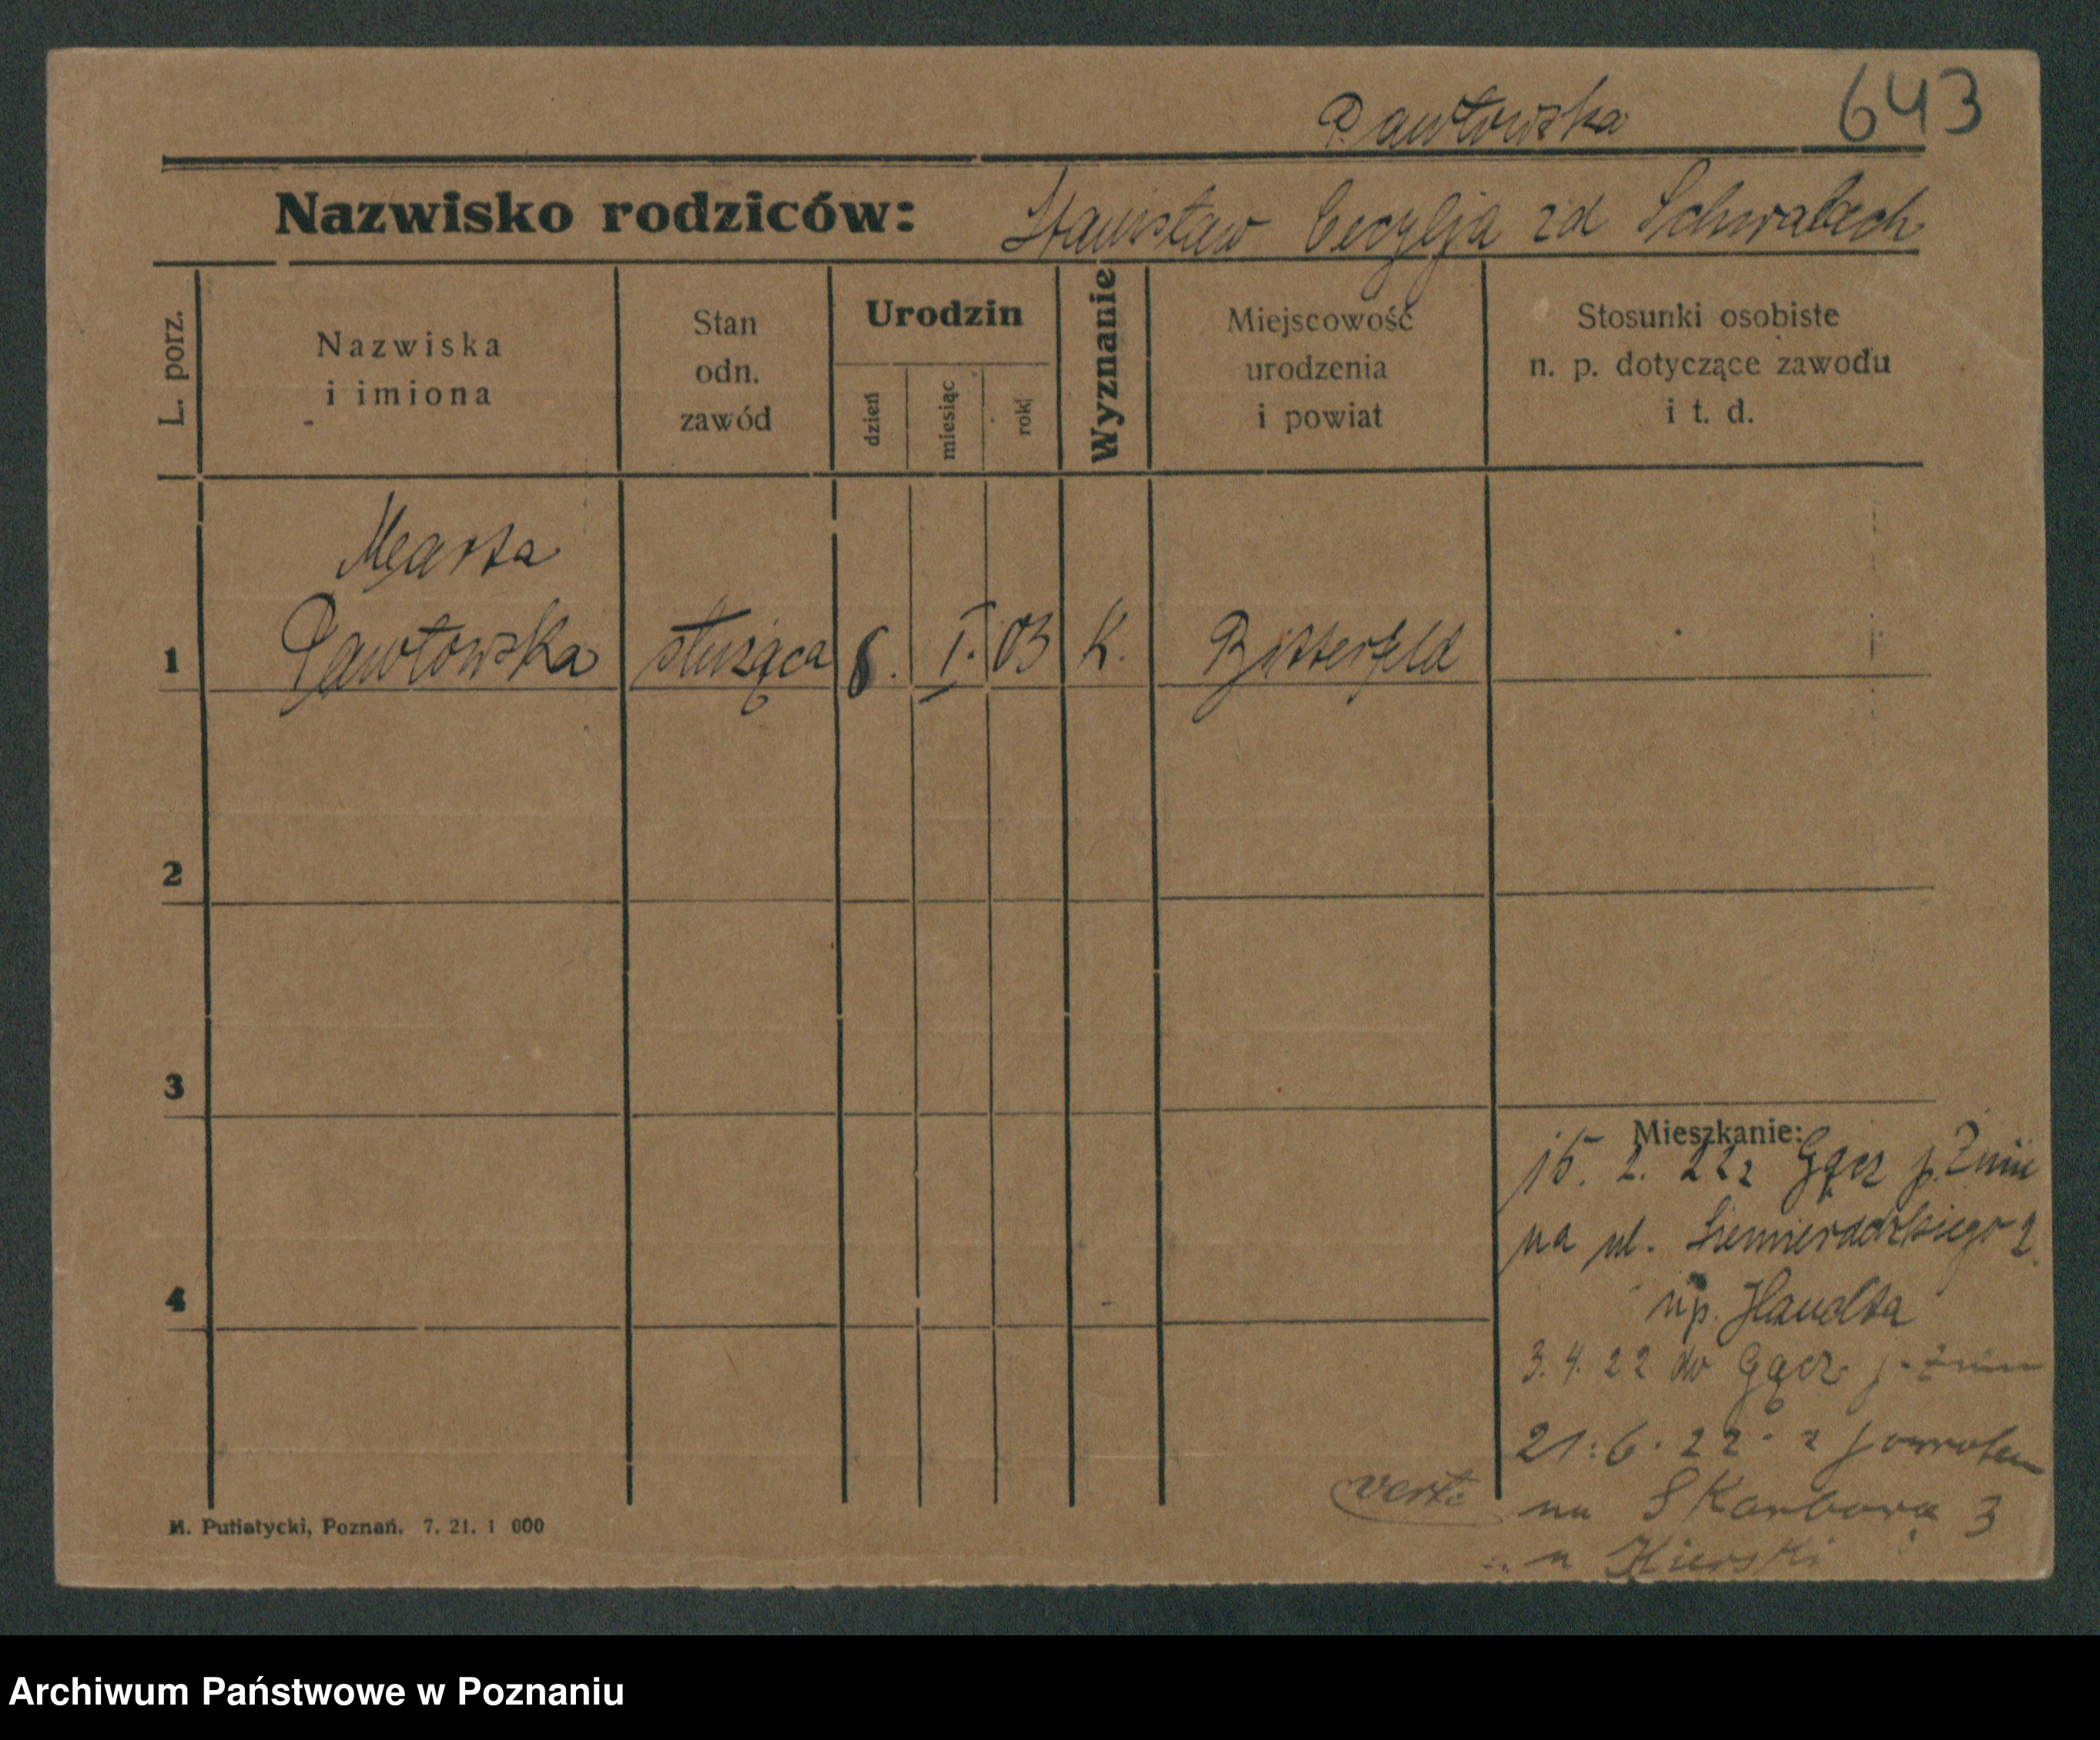 643
Pawłowska
Nazwisko rodziców: Stanisław Cecylja zd Schwalbech
L. porz.
Nazwiska
i imiona
Stan
odn.
zawód
Urodzin
dzień
miesiąc
rok
Wyznanie
Miejscowość
urodzenia
i powiat
Stosunki osobiste
n. p. dotyczące zawodu
i t. d.
Marta
1 Pawłowska służąca 8. I. 03 K. Bitterfeld
2
3
4
Mieszkanie:
15. 2. 22 z Gącz p. Żnin
na ul. Siemieradzkiego 2.
np.
3. 4. 22 do Gącz p. Żnin
21. 6. 22 z powrotem
na Skarbowa 3
u Kierski
verte
M. Putiatycki, Poznań. 7. 21. 1 000
Archiwum Państwowe w Poznaniu